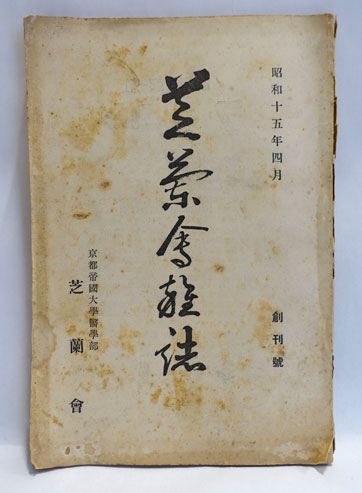 昭和十五年四月
芝蘭會雜誌
創刊號
京都帝國大學醫學部
芝蘭會